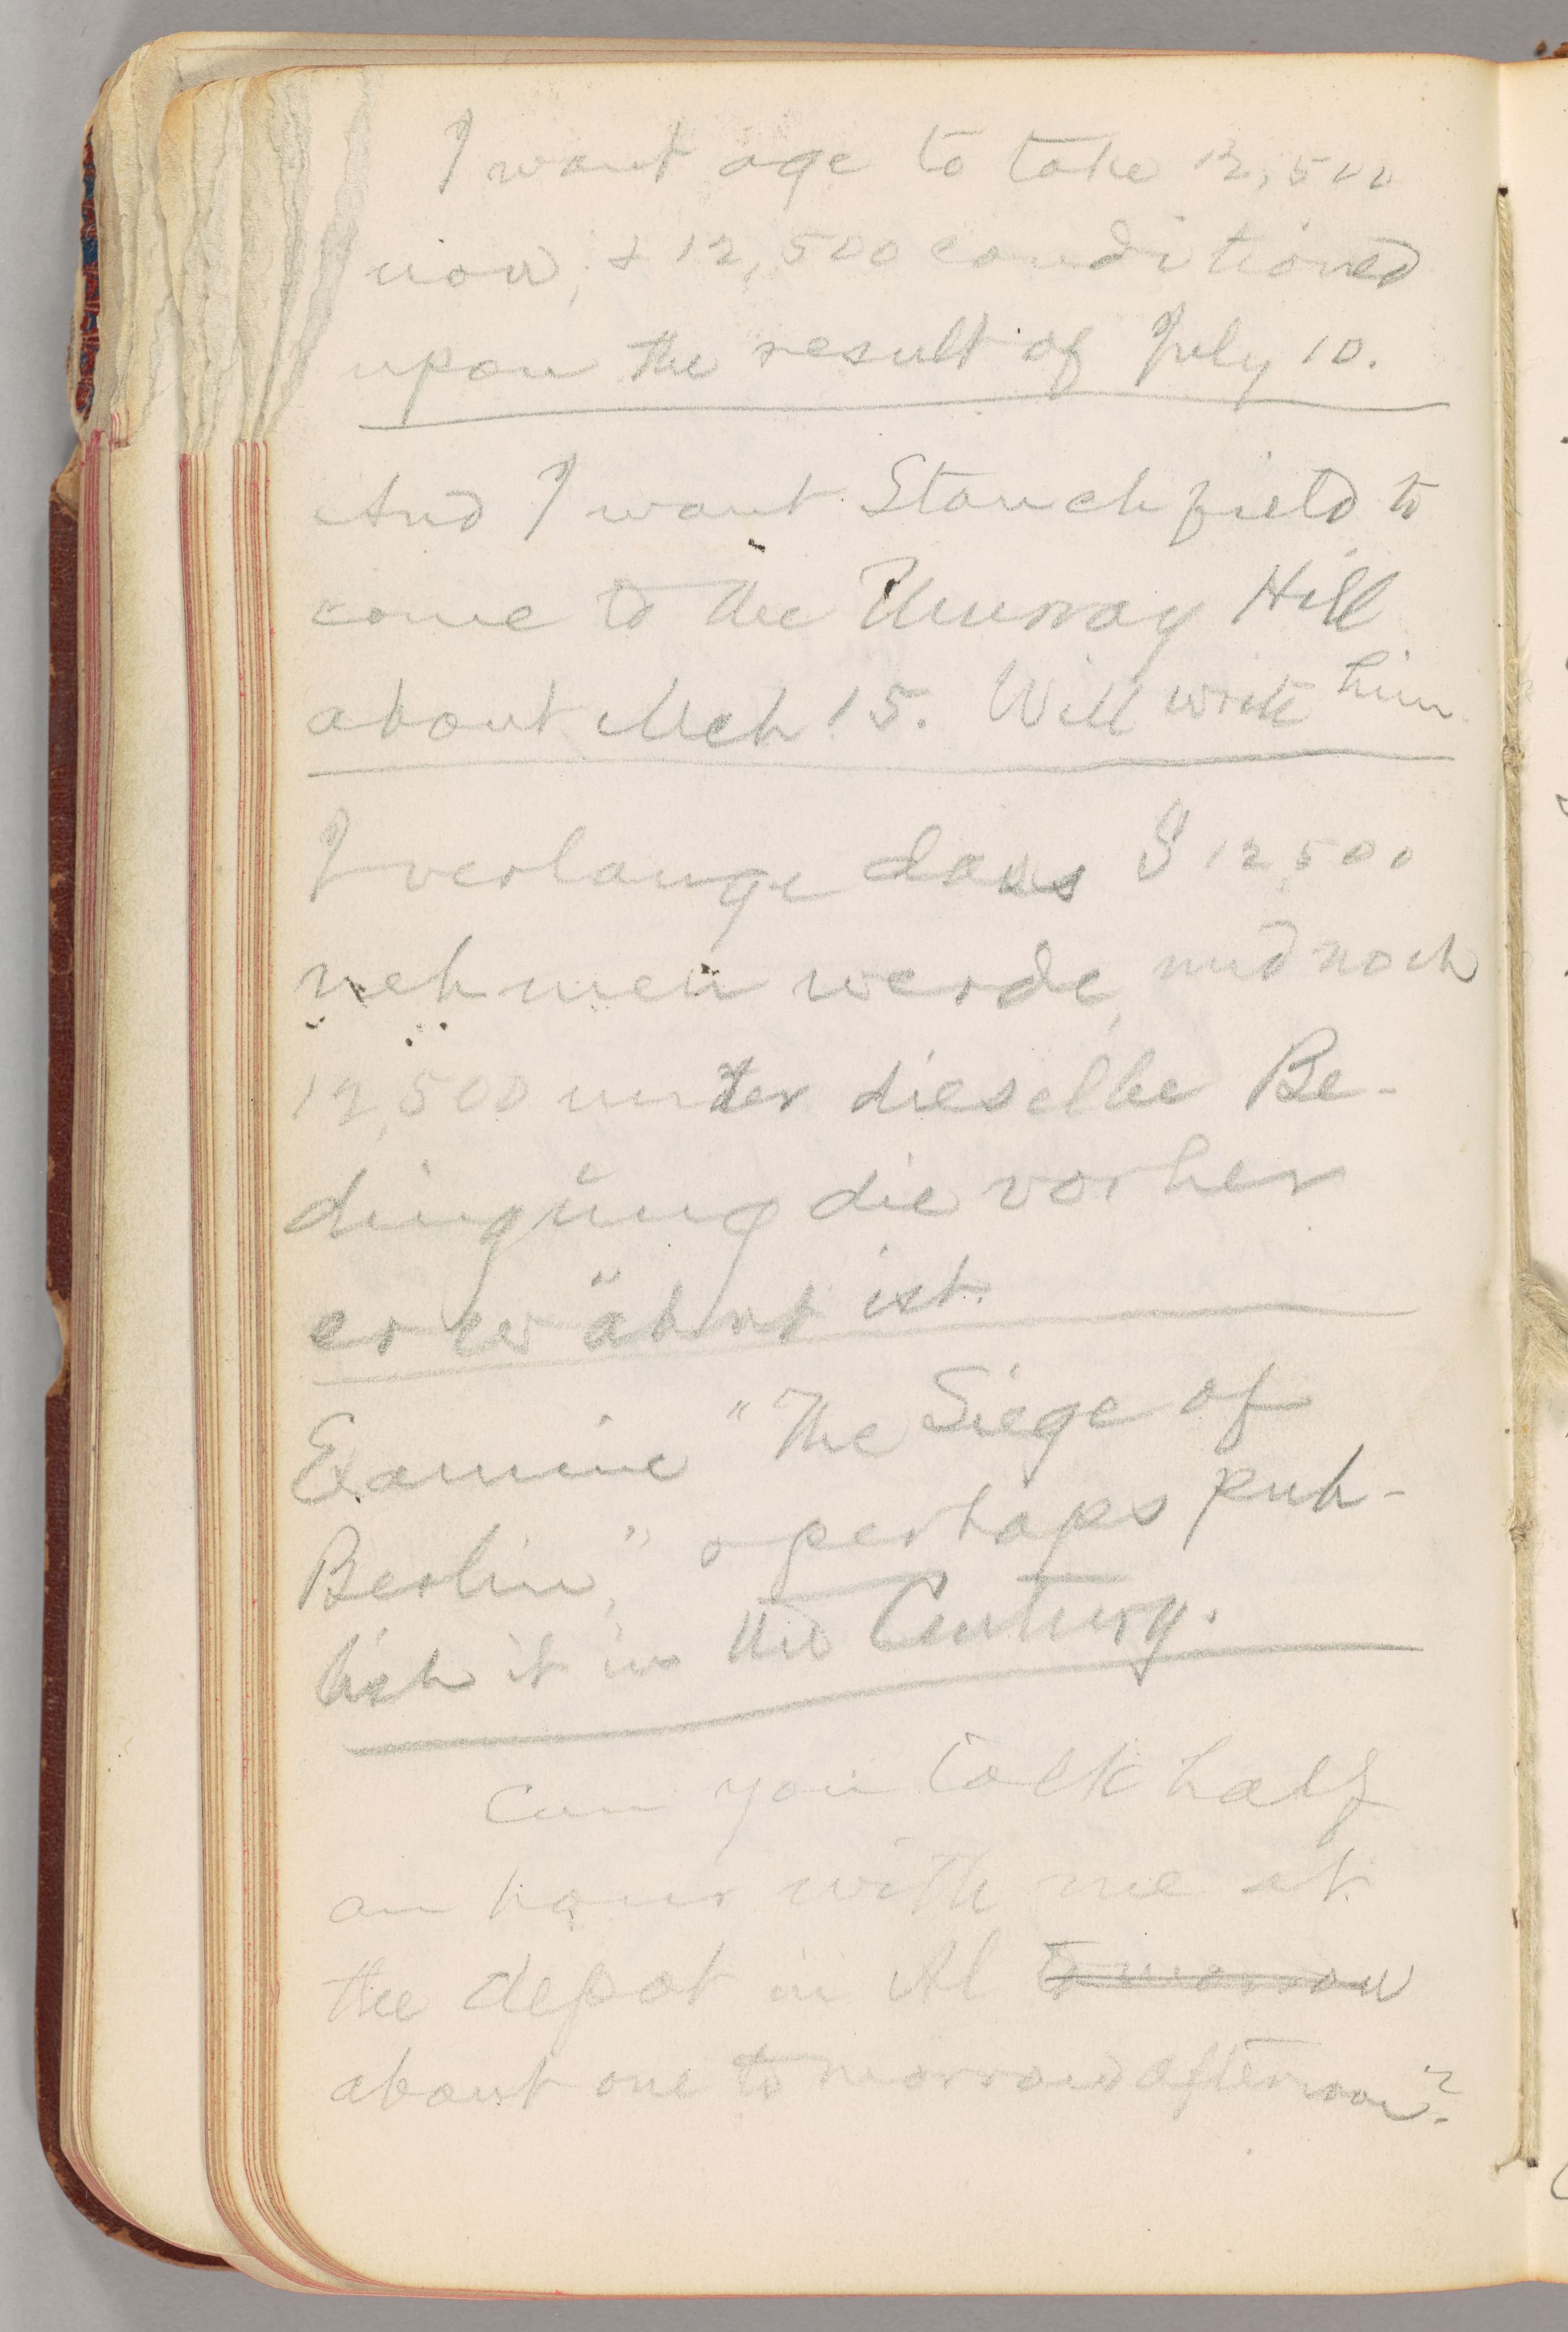 I want age to take 12,500
now, & 12,500 conditioned
upon the result of July 10.
And I want Stanchfield to
come to the Murray Hill
about Mch 15. Will write him.
I verlange dass S 12,500
nehmen werde, und noch
12,500 unter dieselbe Be-
dingŭng die vorher
erwähnt ist.
Examine "The Siege of
Berlin," & perhaps pub-
lish it in the Century.
Can you talk half
an hour with me at
the depot in Al tomorrow
about one tomorrow afternoon?